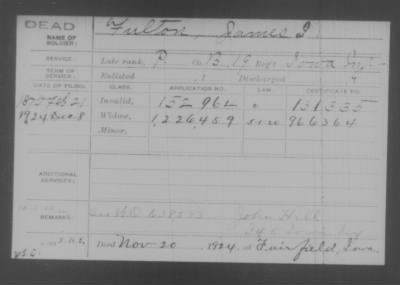 DEAD
NAME OF SOLDIER: Fulton, James
SERVICE: Late rank, P. Co. B, 19 Reg't Iowa Inf.
TERM OF SERVICE: Enlisted , 1 Discharged , 1
DATE OF FILING. CLASS. APPLICATION NO. LAW. CERTIFICATE NO.
1875 Feb 21 Invalid, 152 962 131,335
1924 Dec 8 Widow, 1,226,459 5-1-20 966364
Minor,
ADDITIONAL SERVICES:
REMARKS: John Hill
Died Nov 20 1924, at Fairfield, Iowa.